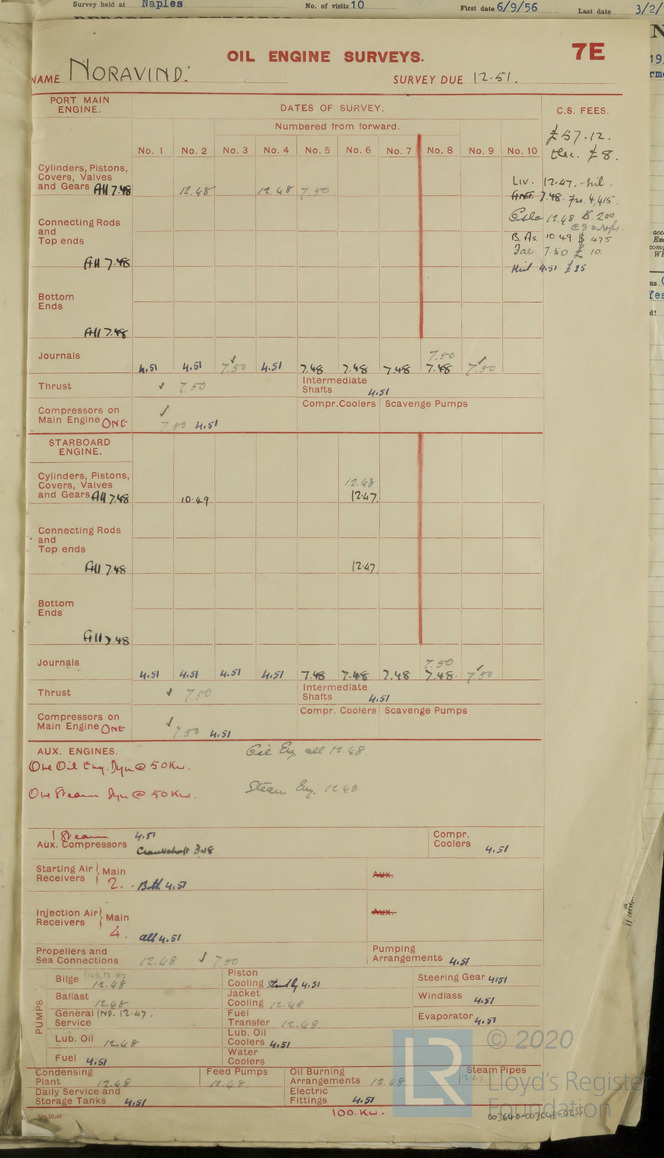 Survey held at Naples No. of visits 10 First date 6/9/56 Last date 3/2/
OIL ENGINE SURVEYS. 7E
NAME NORAVIND. SURVEY DUE 12.51.
PORT MAIN ENGINE. DATES OF SURVEY. C.S. FEES.
Numbered from forward.
No. 1 No. 2 No. 3 No. 4 No. 5 No. 6 No. 7 No. 8 No. 9 No. 10
£57.12.
Elec. £8.
Cylinders, Pistons,
Covers, Valves
and Gears All 7.48 12.48 12.48 7.50
Liv. 12.47. - nil.
7.48. Frs. 4,415.
Oslo 12.48 K. 200
B. As. 10.49 $ 475
7.50 £ 10.
4.51 £25
Connecting Rods
and
Top ends
All 7.48
Bottom
Ends
All 7.48
7.50
Journals 4.51 4.51 7.50 4.51 7.48 7.48 7.48 7.48 7.50
Thrust ✓ 7.50 Intermediate Shafts 4.51
Compressors on
Main Engine ONE ✓ 7.50 4.51 Compr. Coolers Scavenge Pumps
STARBOARD
ENGINE.
Cylinders, Pistons,
Covers, Valves
and Gears All 7.48 10.49 12.48 12.47
Connecting Rods
and
Top ends
All 7.48 12.47
Bottom
Ends
All 7.48
7.50
Journals 4.51 4.51 4.51 4.51 7.48 7.48 7.48 7.48. 7.50
Thrust ✓ 7.50 Intermediate Shafts 4.51
Compressors on
Main Engine ONE ✓ 7.50 4.51 Compr. Coolers Scavenge Pumps
AUX. ENGINES. Oil Eng. all 12.48
One Oil Eng. Dyn @ 50Kw.
One Steam Dyn @ 50Kw. Steam Eng. 12.48
1 Steam 4.51
Aux. Compressors Crankshaft 3.48 Compr. Coolers 4.51
Starting Air Receivers Main 2. Both 4.51 Aux.
Injection Air Receivers Main 4. all 4.51 Aux.
Propellers and
Sea Connections 12.48 ✓ 7.50 Pumping Arrangements 4.51
PUMPS
Bilge 12.48 Piston Cooling Stand by 4.51 Steering Gear 4.51
Ballast 12.48 Jacket Cooling 12.48 Windlass 4.51
General Service IND. 12.47. Fuel Transfer 12.48 Evaporator 4.51
Lub. Oil 12.48 Lub. Oil Coolers 4.51
Fuel 4.51 Water Coolers
Condensing Plant 12.48 Feed Pumps 12.48 Oil Burning Arrangements 12.48 Steam Pipes
Daily Service and
Storage Tanks 4.51 Electric Fittings 4.51
100. Kw.
© 2020
LR
Lloyd's Register
Foundation